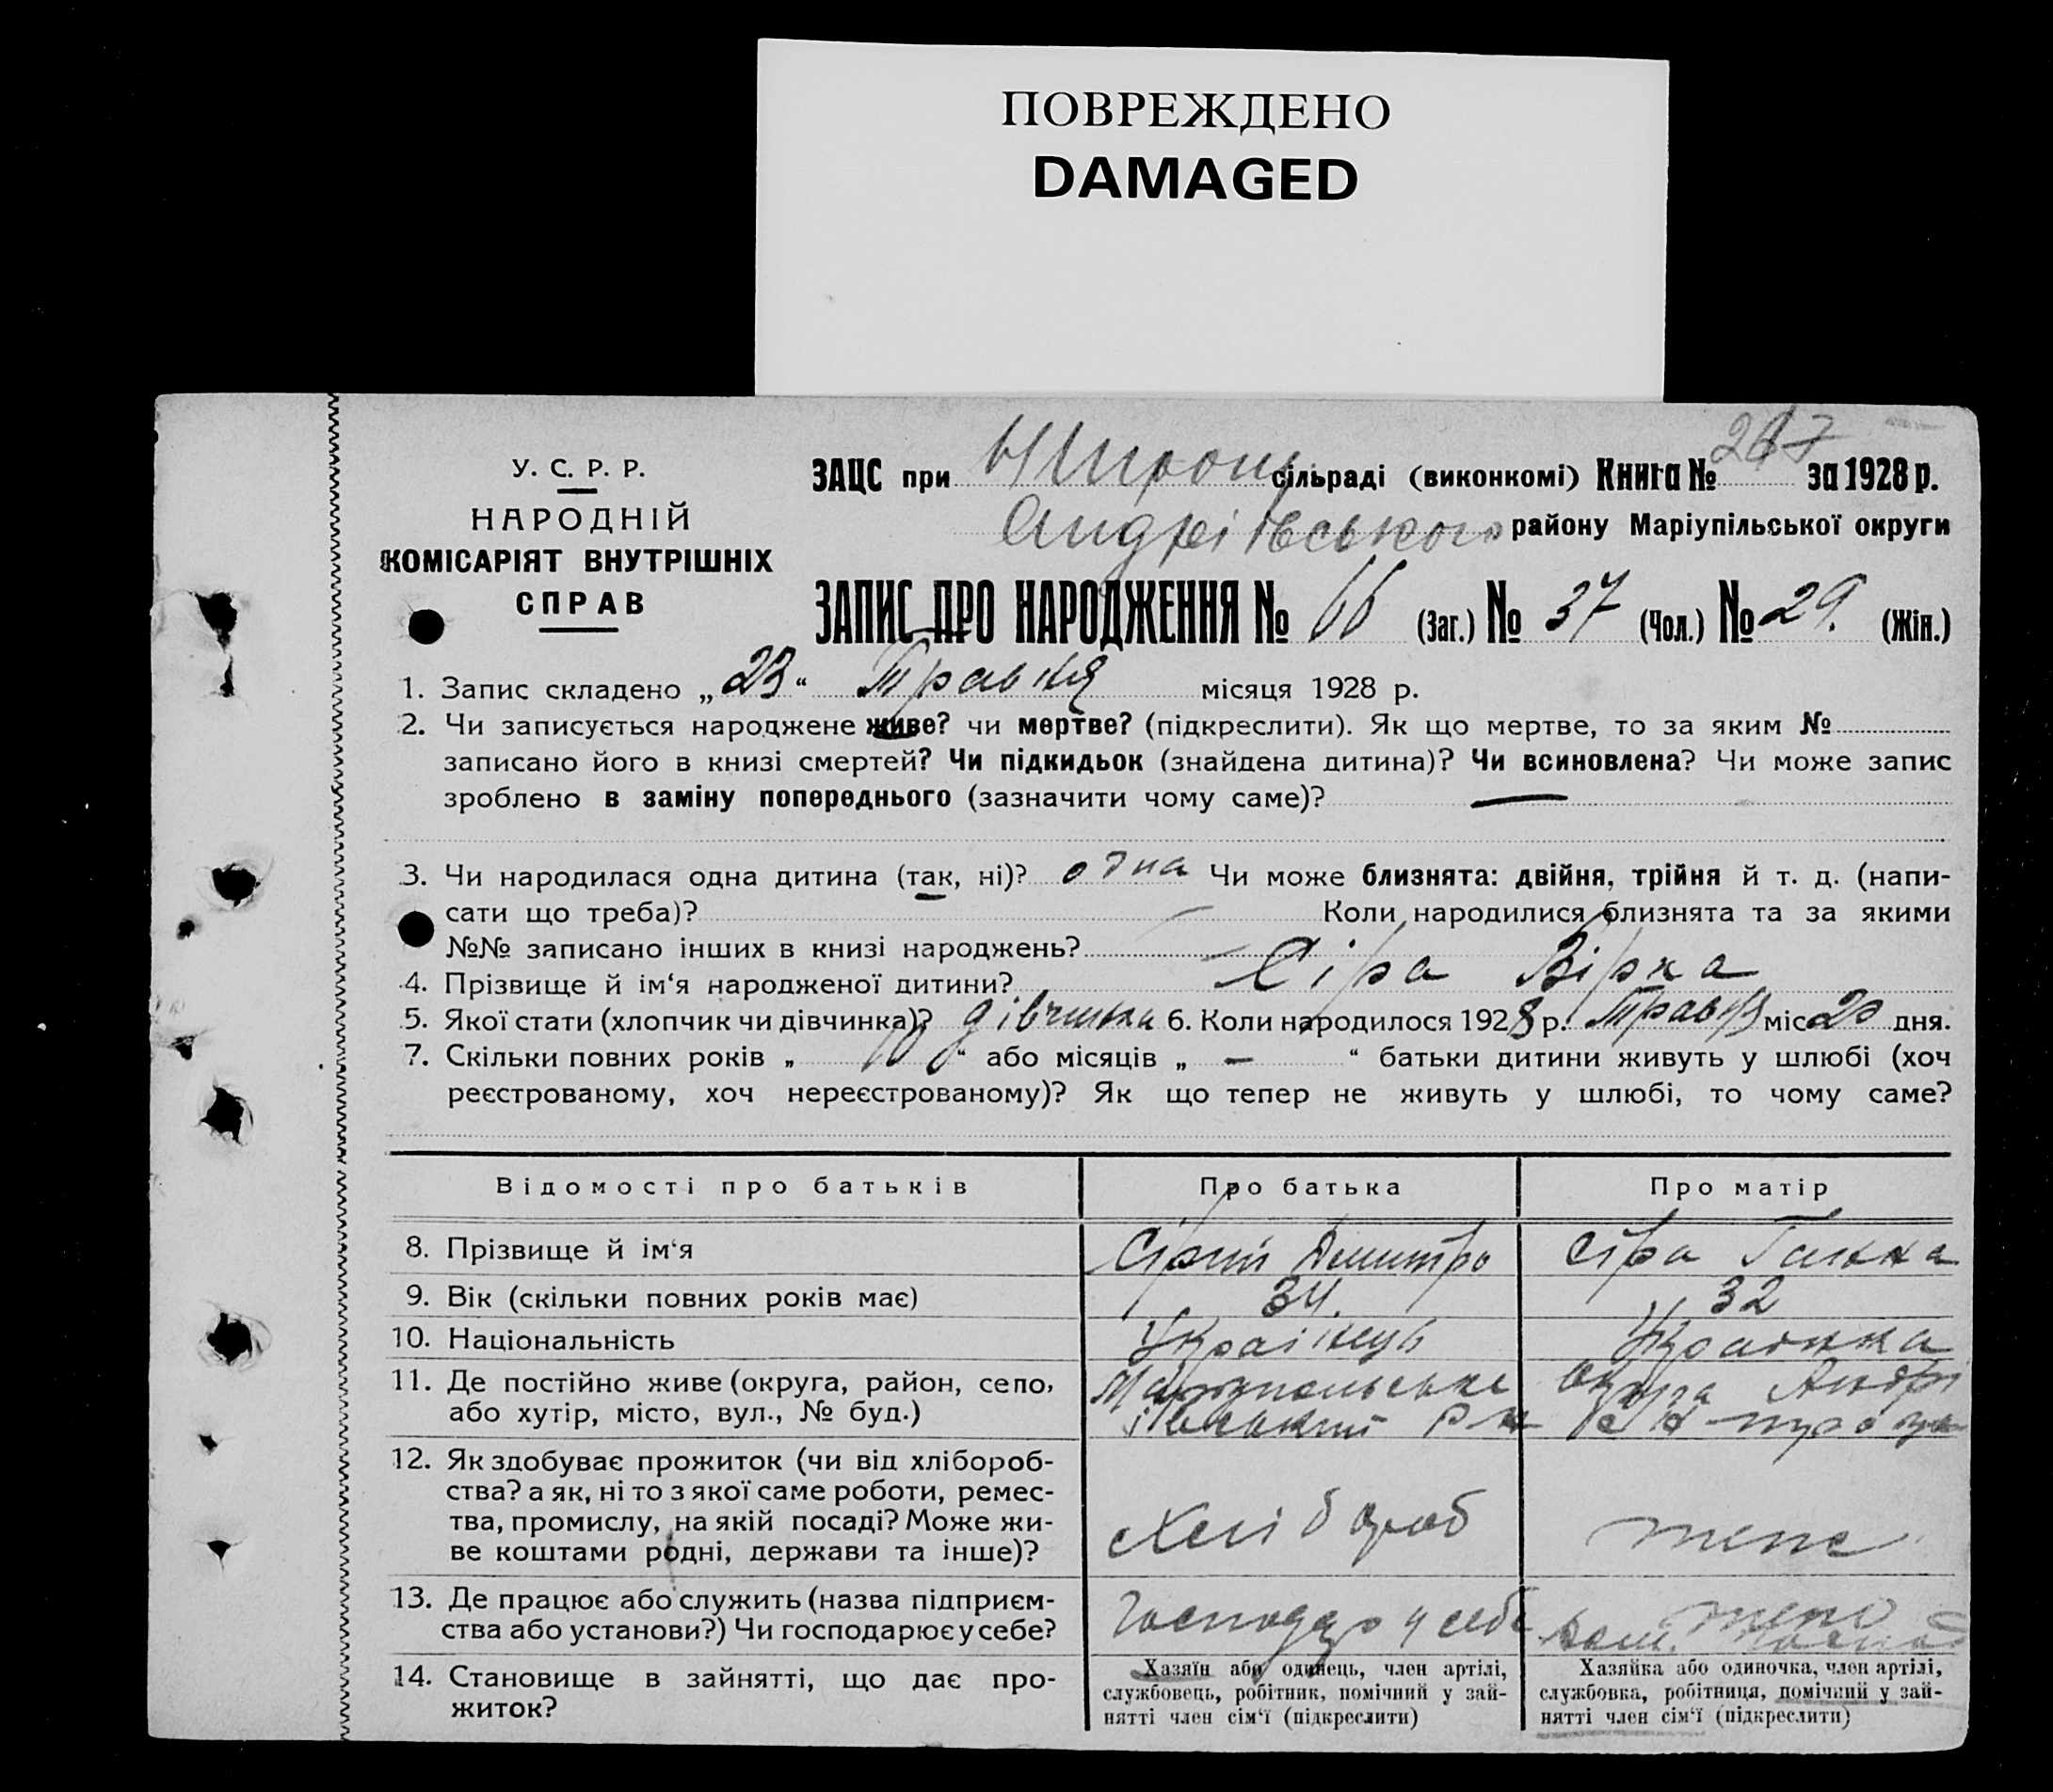 ПОВРЕЖДЕНО
DAMAGED
У. С. Р. Р.
НАРОДНІЙ
КОМІСАРІЯТ ВНУТРІШНІХ
СПРАВ
ЗАЦС при сільраді (виконкомі) Книга № за 1928 р.
Андріївського району Маріупільської округи
ЗАПИС ПРО НАРОДЖЕННЯ № 66 (Заг.) № 37 (Чол.) № 29. (Жін.)
1. Запис складено „23“ Травня місяця 1928 р.
2. Чи записується народжене живе? чи мертве? (підкреслити). Як що мертве, то за яким №
записано його в книзі смертей? Чи підкидьок (знайдена дитина)? Чи всиновлена? Чи може запис
зроблено в заміну попереднього (зазначити чому саме)? —
3. Чи народилася одна дитина (так, ні)? одна Чи може близнята: двійня, трійня й т. д. (напи-
сати що треба)? Коли народилися близнята та за якими
№№ записано інших в книзі народжень?
4. Прізвище й ім‘я народженої дитини? Сіра Вірка
5. Якої стати (хлопчик чи дівчинка)? дівчинка 6. Коли народилося 1928 р. Травня міс 20 дня.
7. Скільки повних років „ 10 “ або місяців „ — “ батьки дитини живуть у шлюбі (хоч
реєстрованому, хоч нереєстрованому)? Як що тепер не живуть у шлюбі, то чому саме?
Відомості про батьків Про батька Про матір
8. Прізвище й ім‘я Сірий Дмитро Сіра Ганна
9. Вік (скільки повних років має) 34. 32
10. Національність Украінець Украінка
11. Де постійно живе (округа, район, село, Маріупольська округа Андрі
або хутір, місто, вул., № буд.) івський р-н
12. Як здобуває прожиток (чи від хлібороб-
ства? а як, ні то з якої саме роботи, ремес-
тва, промислу, на якій посаді? Може жи- Хлібороб тепе
ве коштами родні, держави та інше)?
13. Де працює або служить (назва підприєм- у себе
ства або установи?) Чи господарює у себе?
14. Становище в зайнятті, що дає про-
житок?
Хазяїн або одинець, член артілі,
службовець, робітник, помічний у зай-
нятті член сім‘ї (підкреслити)
Хазяйка або одиночка, член артілі,
службовка, робітниця, помічний у зай-
нятті член сім‘ї (підкреслити)